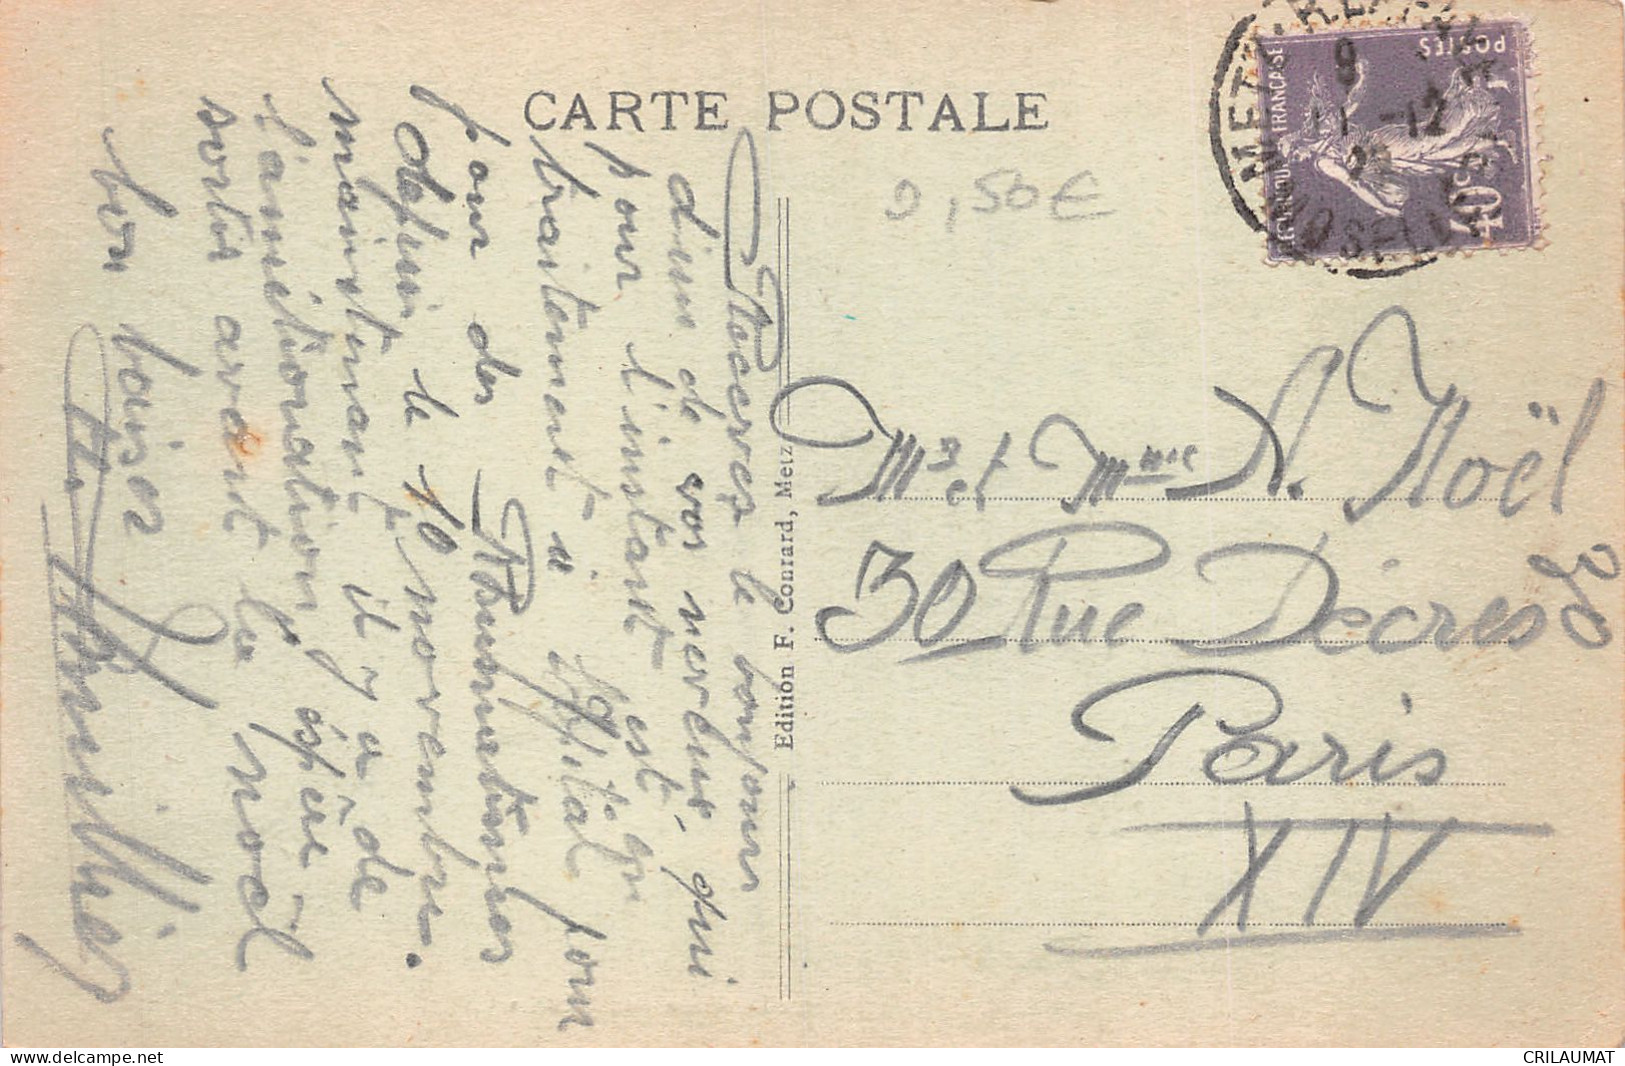 CARTE POSTALE
0,50€
Recevez le bonjour
d'un de vos neveux, qui
pour l'instant est en
traitement à l'Hôpital pour
pour des Rhumatismes
depuis le 10 novembre.
maintenant il y a de
l'amélioration j'éspère
sortir avant la noël
bon baiser
Edition F. Conrard, Metz
METZ
9
11 -12
MOSELLE
REPUBLIQUE FRANÇAISE
POSTES
40c
Mr et Mme A. Noël
30 Rue Décres 30
Paris
XIV
CRILAUMAT
www.delcampe.net